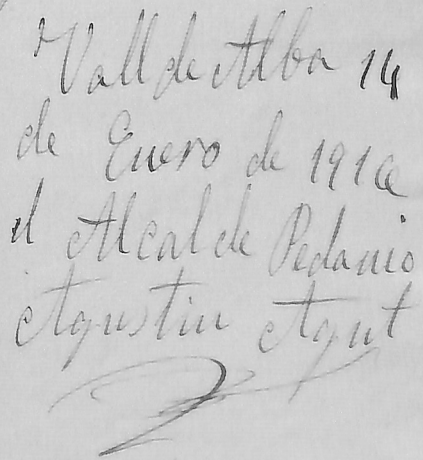 Vall de Alba 14
de Enero de 1910
el Alcalde Pedanio
Agustin Agut